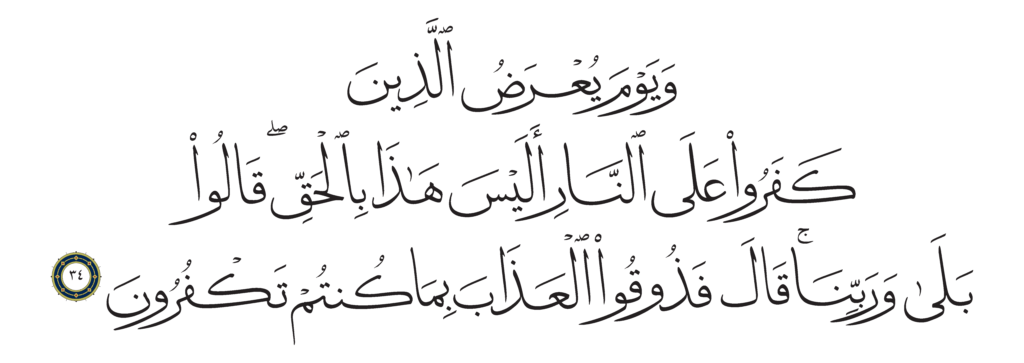 وَيَوْمَ يُعْرَضُ ٱلَّذِينَ
كَفَرُوا۟ عَلَى ٱلنَّارِ أَلَيْسَ هَـٰذَا بِٱلْحَقِّ ۖ قَالُوا۟
بَلَىٰ وَرَبِّنَا ۚ قَالَ فَذُوقُوا۟ ٱلْعَذَابَ بِمَا كُنتُمْ تَكْفُرُونَ ٣٤